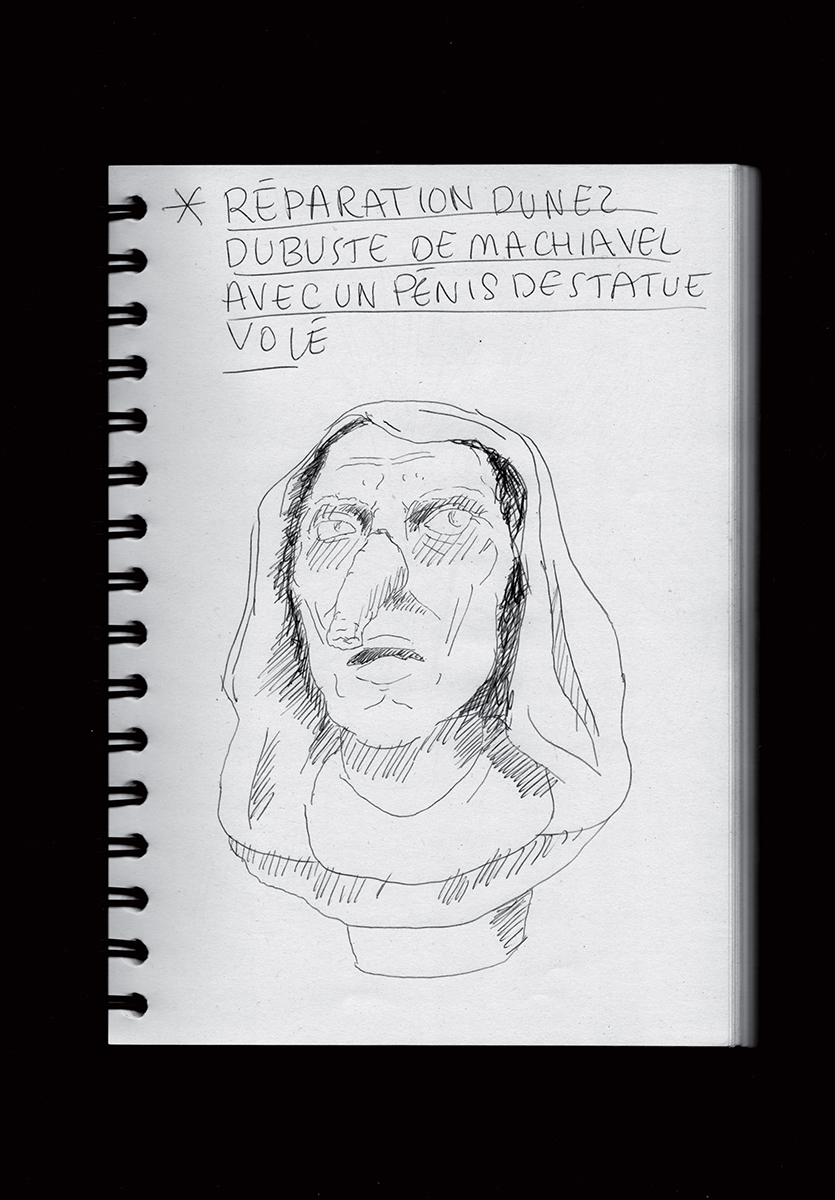 * RÉPARATION DU NEZ
DU BUSTE DE MACHIAVEL
AVEC UN PÉNIS DE STATUE
VOLÉ